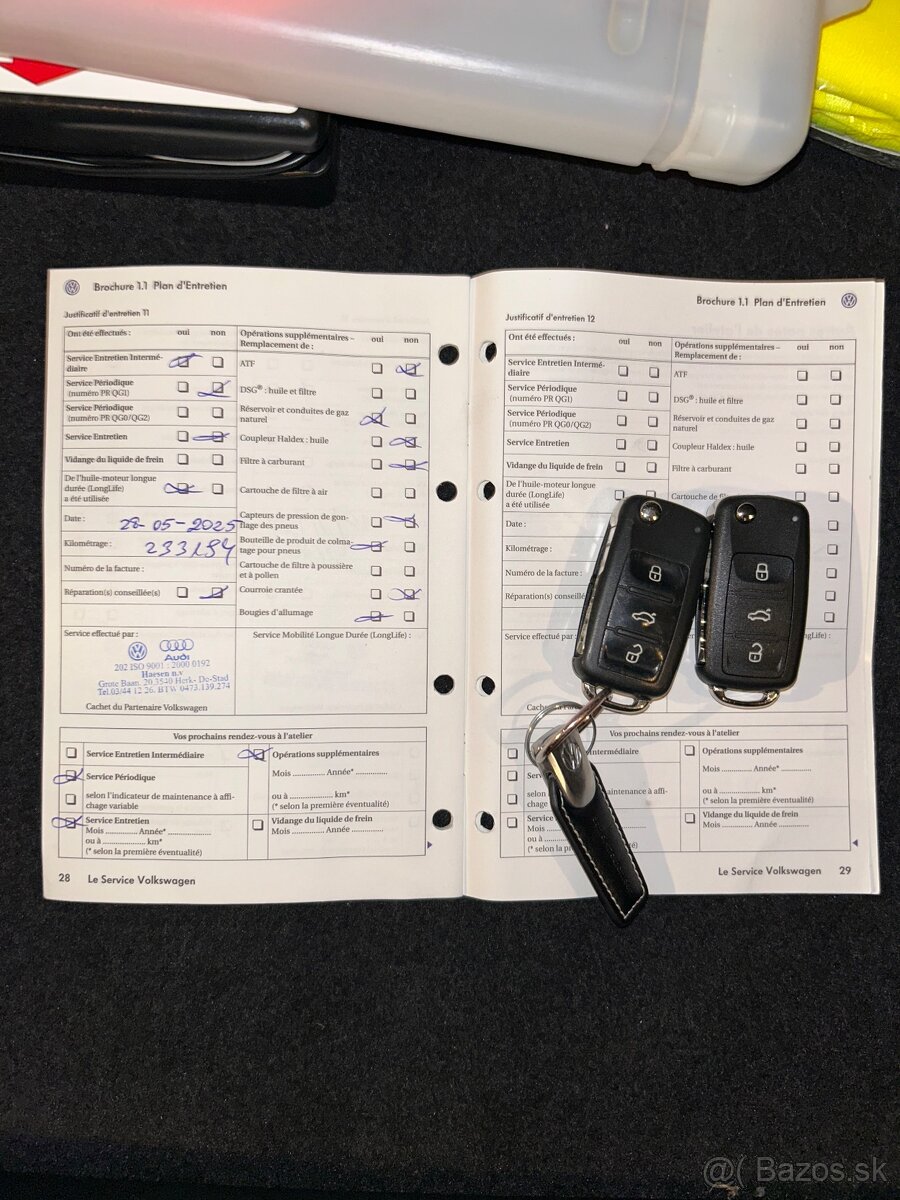 Brochure 1.1 Plan d'Entretien
Justificatif d'entretien 11
Ont été effectués : oui non
Service Entretien Intermé-
diaire
Service Périodique
(numéro PR QG1)
Service Périodique
(numéro PR QG0/QG2)
Service Entretien
Vidange du liquide de frein
De l'huile-moteur longue
durée (LongLife)
a été utilisée
Date : 28-05-2025
Kilométrage : 233194
Numéro de la facture :
Réparation(s) conseillée(s)
Opérations supplémentaires – oui non
Remplacement de :
ATF
DSG® : huile et filtre
Réservoir et conduites de gaz
naturel
Coupleur Haldex : huile
Filtre à carburant
Cartouche de filtre à air
Capteurs de pression de gon-
flage des pneus
Bouteille de produit de colma-
tage pour pneus
Cartouche de filtre à poussière
et à pollen
Courroie crantée
Bougies d'allumage
Service effectué par :
Audi
202 ISO 9001 : 2000 0192
Haesen n.v
Grote Baan, 20.3540 Herk- De-Stad
Tel.03/44 12 26. BTW 0473.139.274
Cachet du Partenaire Volkswagen
Service Mobilité Longue Durée (LongLife) :
Vos prochains rendez-vous à l'atelier
Service Entretien Intermédiaire
Service Périodique
selon l'indicateur de maintenance à affi-
chage variable
Service Entretien
Mois ............. Année* ..................
ou à ............. km*
(* selon la première éventualité)
Opérations supplémentaires
Mois ............. Année* .............
ou à ............. km*
(* selon la première éventualité)
Vidange du liquide de frein
Mois ............. Année .............
28 Le Service Volkswagen
Brochure 1.1 Plan d'Entretien
Justificatif d'entretien 12
Ont été effectués : oui non
Service Entretien Intermé-
diaire
Service Périodique
(numéro PR QG1)
Service Périodique
(numéro PR QG0/QG2)
Service Entretien
Vidange du liquide de frein
De l'huile-moteur longue
durée (LongLife)
a été utilisée
Date :
Kilométrage :
Numéro de la facture :
Réparation(s) conseillée
Opérations supplémentaires – oui non
Remplacement de :
ATF
DSG® : huile et filtre
Réservoir et conduites de gaz
naturel
Coupleur Haldex : huile
Filtre à carburant
Cartouche de
Service effectué par
Vos prochains rendez-vous à l'atelier
Intermédiaire
maintenance à affi-
chage
Service
Mois
ou à
(* selon la première éventualité)
Opérations supplémentaires
Mois ............. Année* .............
ou à ............. km*
(* selon la première éventualité)
Vidange du liquide de frein
Mois ............. Année .............
Le Service Volkswagen 29
@( Bazos.sk